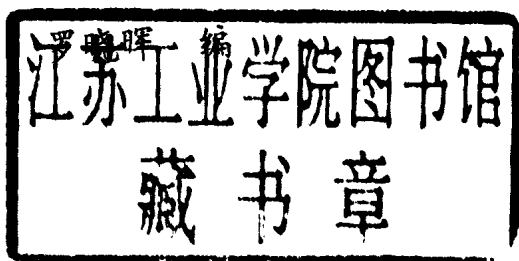 罗晓晖 编
江苏工业学院图书馆
藏书章